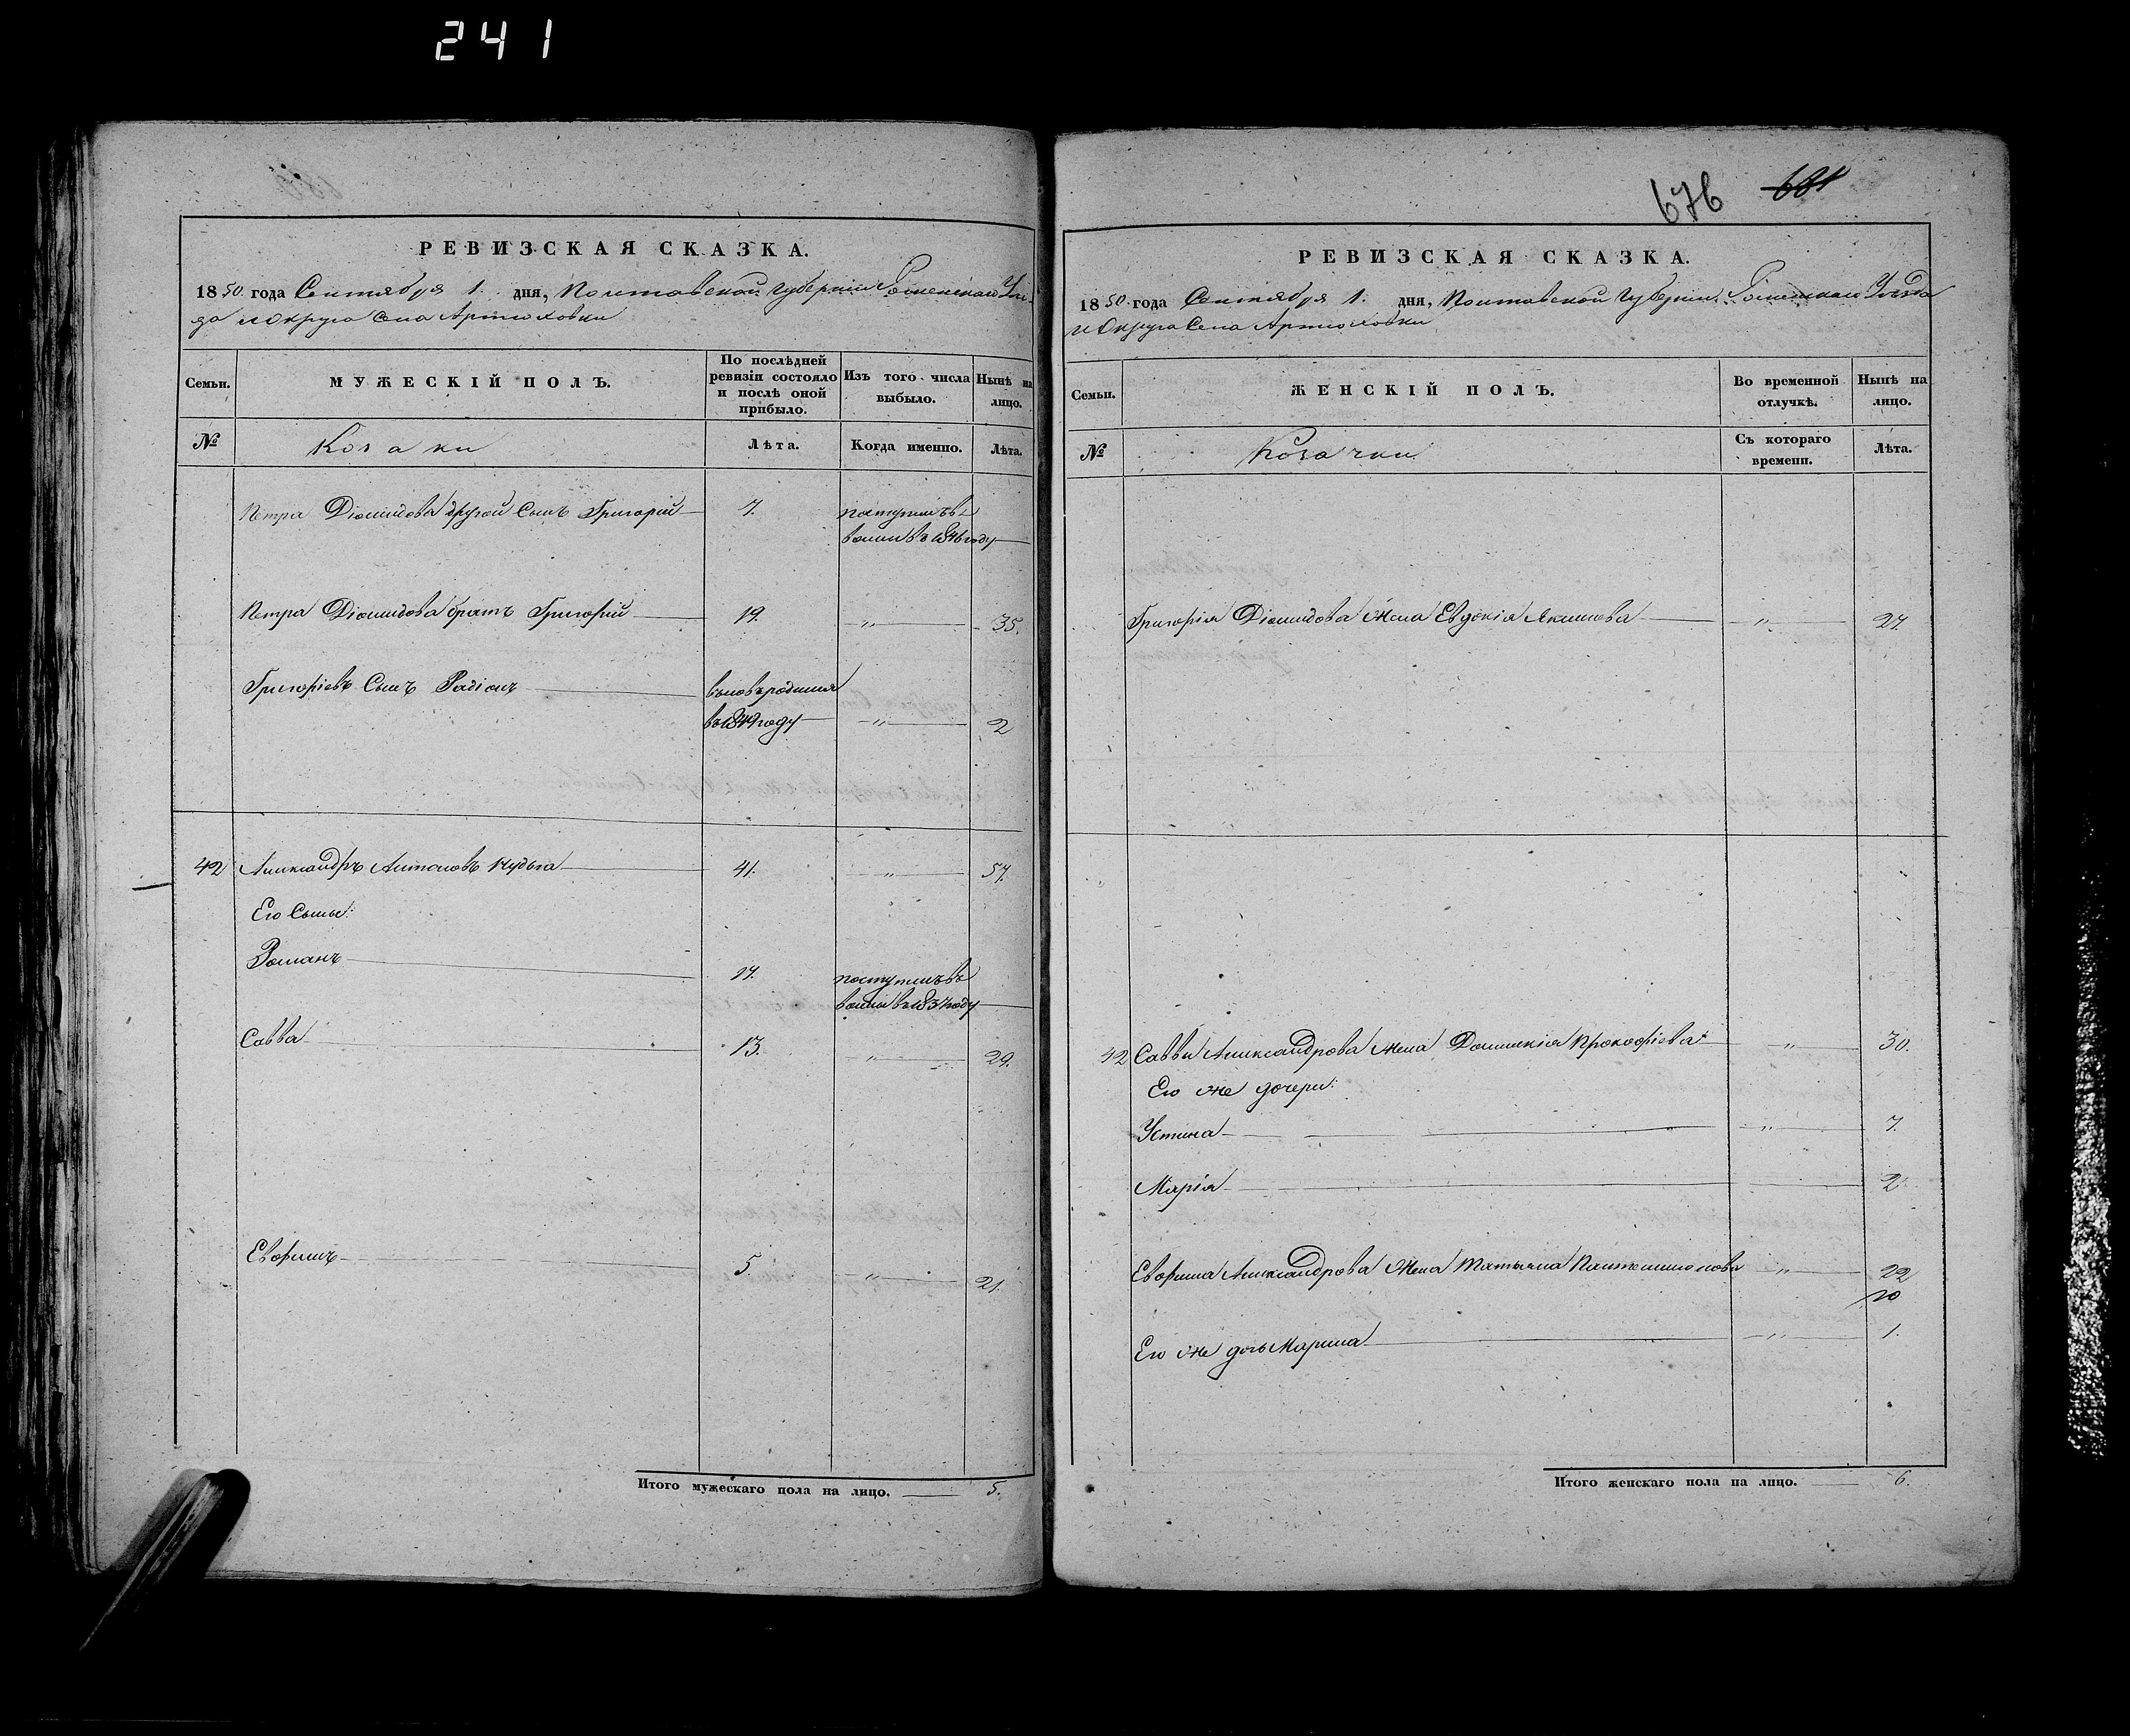 241
РЕВИЗСКАЯ СКАЗКА.
1850 года Сентября 1. дня, Полтавской Губерніи Роменскаго Уѣз-
да и Округа Села Артюховки
Семьи. МУЖЕСКІЙ ПОЛЪ. По послѣдней ревизіи состояло и послѣ оной прибыло. Изъ того числа выбыло. Нынѣ на лицо.
№ Козаки Лѣта. Когда именно. Лѣта.
Петра Діомидова другой Сынъ Григорій 7. поступилъ въ
воины въ 1846 году
Петра Діомидова братъ Григорій 19. „ 35.
Григоріевъ Сынъ Родіонъ вновь родился
въ 1849 году „ 2
42 Александръ Антоновъ Кудьга 41. „ 57.
Его Сыны:
Романъ 17. поступилъ въ
воины въ 1837 году
Савва 13. „ 29.
Евфимъ 5. „ 21.
Итого мужескаго пола на лицо. 5.
676 681
РЕВИЗСКАЯ СКАЗКА.
1850 года Сентября 1. дня, Полтавской Губерніи Роменскаго Уѣзда
и Округа Села Артюховки
Семьи. ЖЕНСКІЙ ПОЛЪ. Во временной отлучкѣ. Нынѣ на лицо.
№ Козачки Съ котораго времени. Лѣта.
Григорія Діомидова Жена Евдокія Якимова „ 27.
42 Саввы Александрова Жена Домникія Прокофіева „ 30.
Его же дочери:
Устина „ 7.
Марія 2
Евфима Александрова Жена Татьяна Пантелимонова „ 22
20
Его же дочь Марина „ 1.
Итого женскаго пола на лицо. 6.